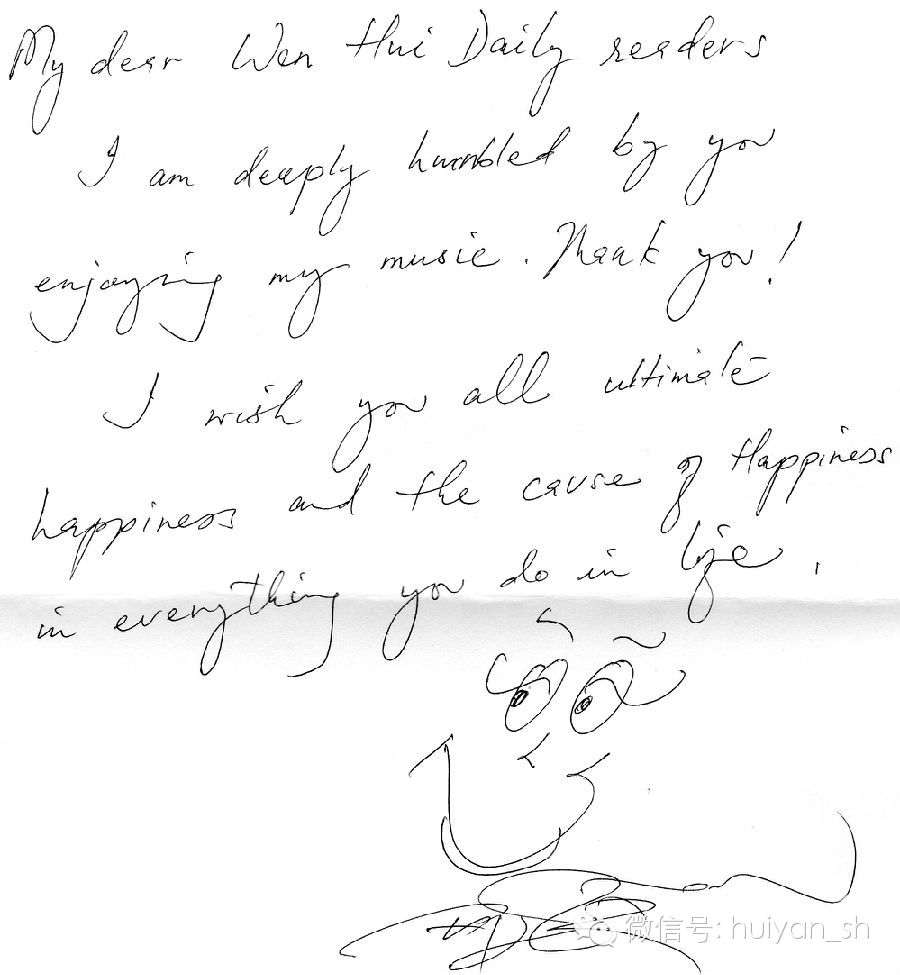 My dear Wen Hui Daily readers
I am deeply humbled by you
enjoying my music. Thank you!
I wish you all ultimate
happiness and the cause of Happiness
in everything you do in life.
微信号: huiyan_sh